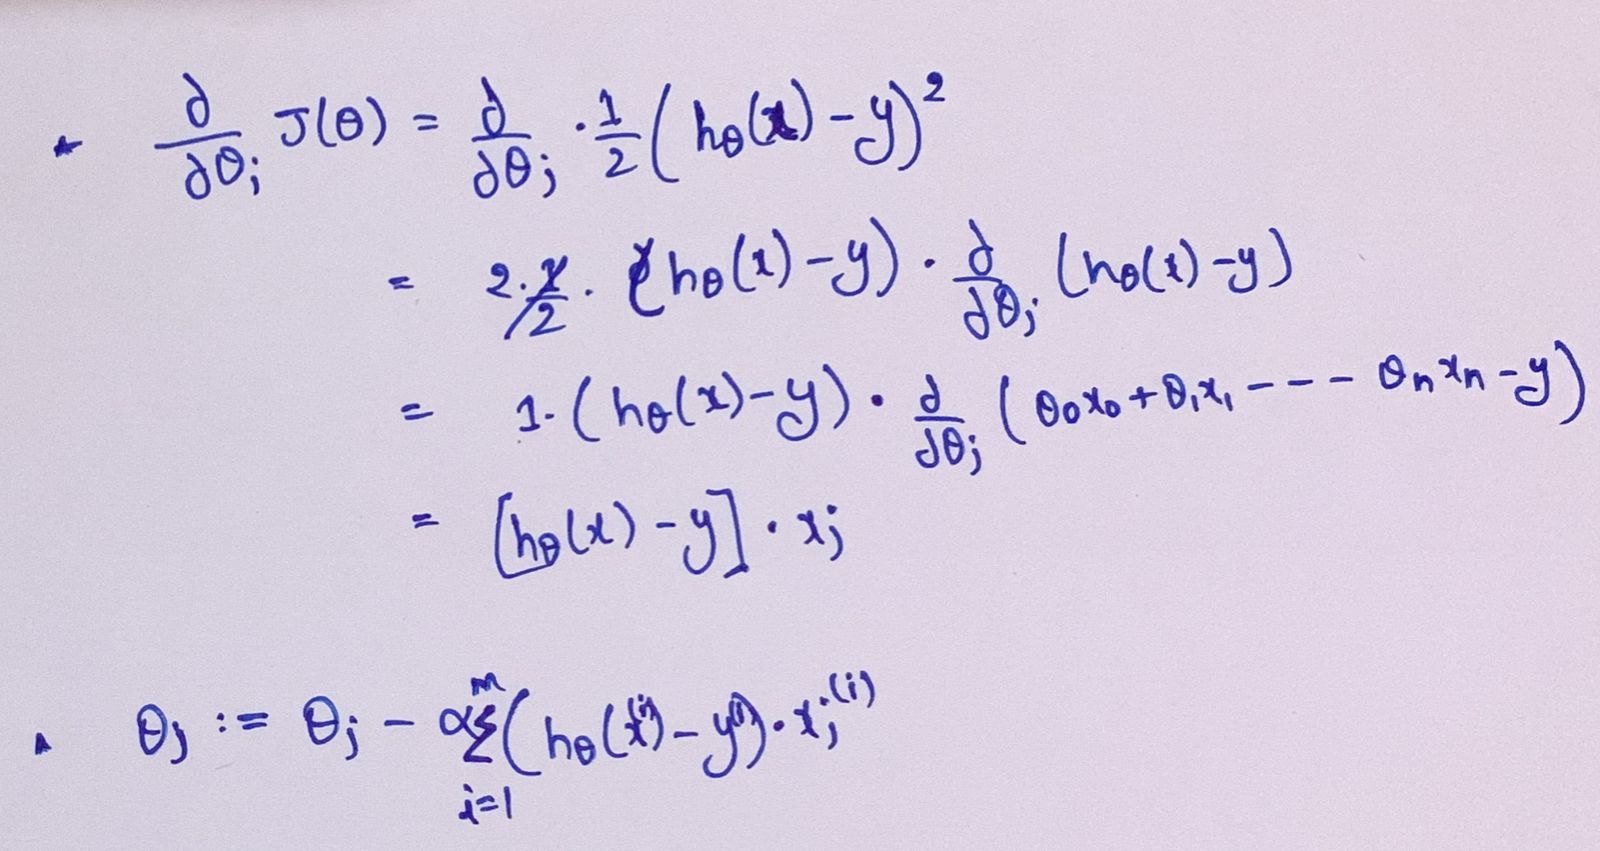 * ∂/∂θj J(θ) = ∂/∂θj · 1/2 (hθ(x) - y)²
= 2 · 1/2 · (hθ(x) - y) · ∂/∂θj (hθ(x) - y)
= 1 · (hθ(x) - y) · ∂/∂θj (θ0x0 + θ1x1 - - - - θnxn - y)
= [hθ(x) - y] · xj
* θj := θj - α Σ_{i=1}^{m} (hθ(x^(i)) - y^(i)) · xj^(i)